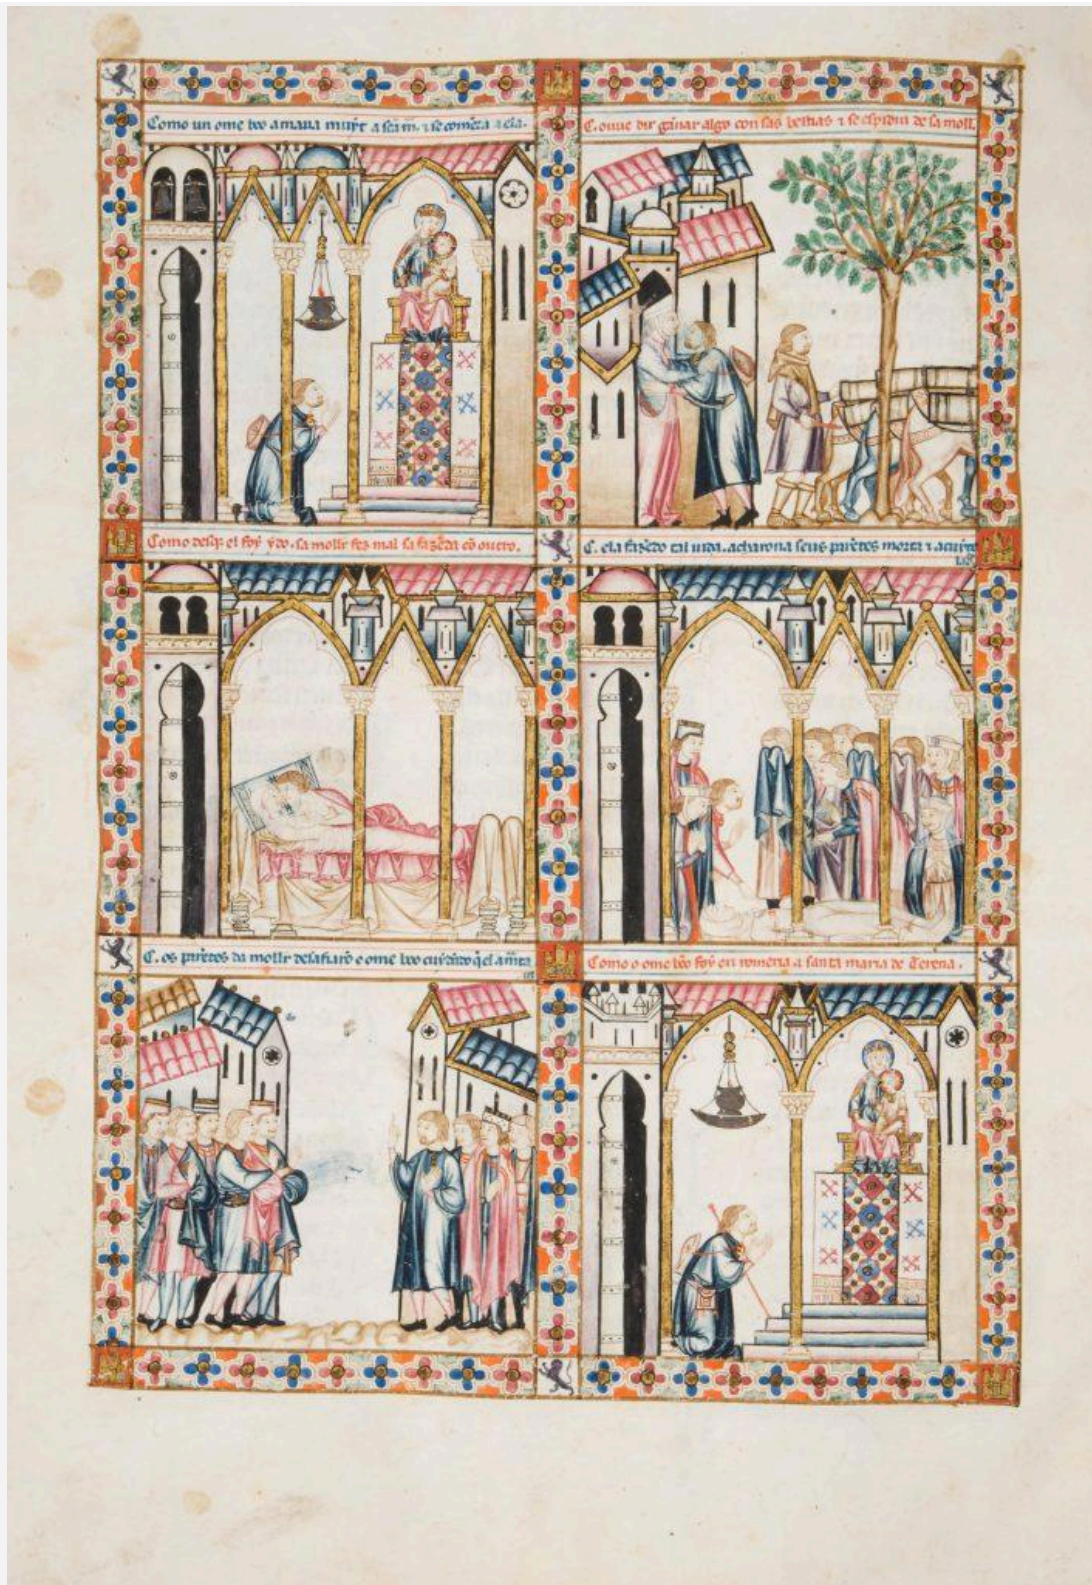 Como un ome bõo amaua muyt a scã m̃. ⁊ se comẽda a ela.
C. ouue dir gãnar algo con sas bestias ⁊ se espidiu de sa moll̃.
Como desq̃ el foy ydo. sa moll̃r fez mal sa fazẽda cõ outro.
C. ela fazẽdo tal uida. acharona seus parẽtes morta ⁊
C. os parẽtes da moll̃r desafiarõ o ome bõo cuydãdo q̃ el
Como o ome bõo foy en romeria a santa maria de Terena.